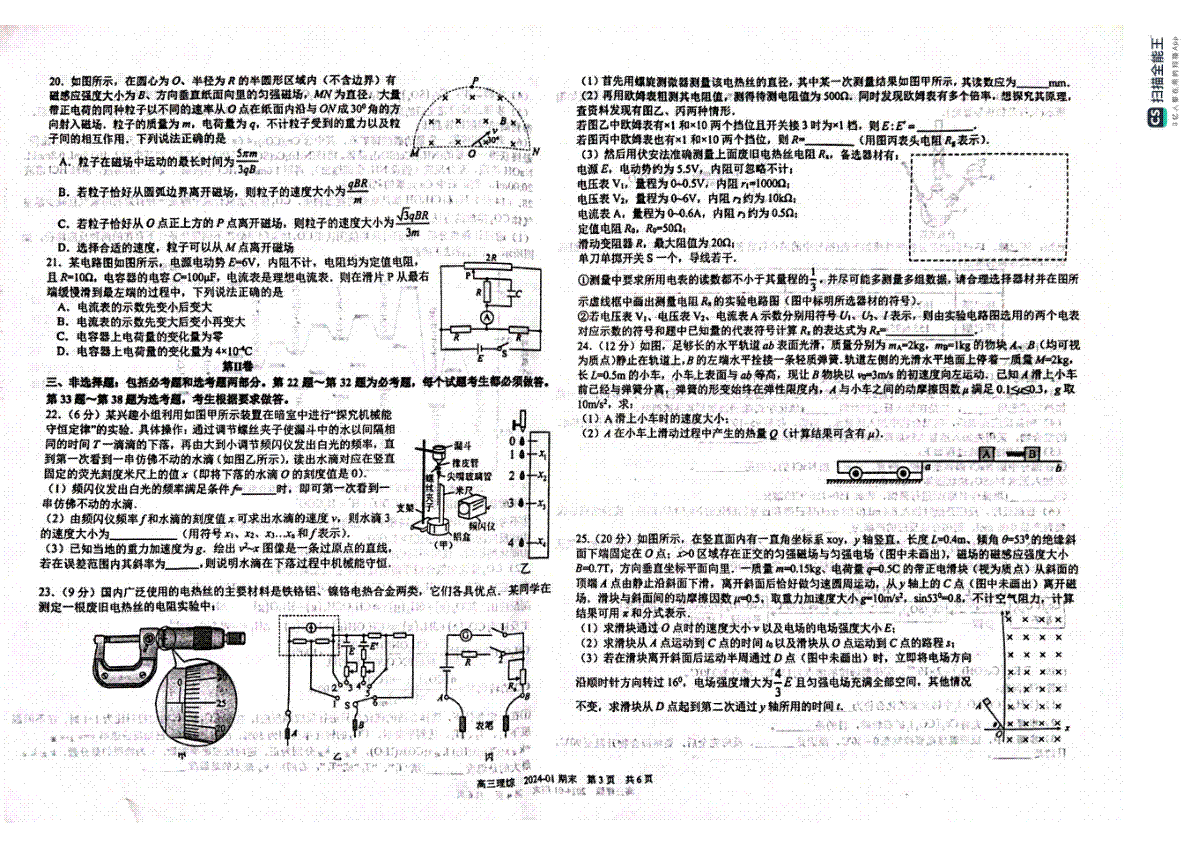 20．如图所示，在圆心为 O、半径为 R 的半圆形区域内（不含边界）有
磁感应强度大小为 B、方向垂直纸面向里的匀强磁场，MN 为直径。大量
带正电荷的同种粒子以不同的速率从 O 点在纸面内沿与 ON 成 30° 角的方
向射入磁场．粒子的质量为 m，电荷量为 q，不计粒子受到的重力以及粒
子间的相互作用．下列说法正确的是
A．粒子在磁场中运动的最长时间为 5πm/3qB
B．若粒子恰好从圆弧边界离开磁场，则粒子的速度大小为 qBR/m
C．若粒子恰好从 O 点正上方的 P 点离开磁场，则粒子的速度大小为 √3qBR/3m
D．选择合适的速度，粒子可以从 M 点离开磁场
P
B
v
30°
M O N
21．某电路图如图所示，电源电动势 E=6V，内阻不计，电阻均为定值电阻，
且 R=10Ω，电容器的电容 C=100μF，电流表是理想电流表．则在滑片 P 从最右
端缓慢滑到最左端的过程中，下列说法正确的是
A．电流表的示数先变小后变大
B．电流表的示数先变大后变小再变大
C．电容器上电荷量的变化量为零
D．电容器上电荷量的变化量为 4×10⁻⁴C
2R
P
R
C
A
R R
E S
第II卷
三、非选择题：包括必考题和选考题两部分．第 22 题～第 32 题为必考题，每个试题考生都必须做答。
第 33 题～第 38 题为选考题，考生根据要求做答。
22．（6 分）某兴趣小组利用如图甲所示装置在暗室中进行“探究机械能
守恒定律”的实验．具体操作：通过调节螺丝夹子使漏斗中的水以间隔相
同的时间 T 一滴滴的下落，再由大到小调节频闪仪发出白光的频率，直
到第一次看到一串仿佛不动的水滴（如图乙所示），读出水滴对应在竖直
固定的荧光刻度米尺上的值 x（即将下落的水滴 O 的刻度值是 0）．
（1）频闪仪发出白光的频率满足条件 f=______时，即可第一次看到一
串仿佛不动的水滴．
（2）由频闪仪频率 f 和水滴的刻度值 x 可求出水滴的速度 v，则水滴 3
的速度大小为____________（用符号 x₁、x₂、x₃…xₙ 和 f 表示）．
（3）已知当地的重力加速度为 g．绘出 v²–x 图像是一条过原点的直线，
若在误差范围内其斜率为______，则说明水滴在下落过程中机械能守恒．
漏斗
橡皮管
尖嘴玻璃管
米尺
螺丝夹子
支架
频闪仪
铝盒
（甲）
0
1 x₁
2 x₂
3 x₃
4 x₄
乙
23．（9 分）国内广泛使用的电热丝的主要材料是铁铬铝、镍铬电热合金两类，它们各具优点．某同学在
测定一根废旧电热丝的电阻实验中：
甲
乙
丙
表笔
（1）首先用螺旋测微器测量该电热丝的直径，其中某一次测量结果如图甲所示，其读数应为______mm．
（2）再用欧姆表粗测其电阻值，测得待测电阻值为 500Ω．同时发现欧姆表有多个倍率，想探究其原理，
查资料发现有图乙、丙两种情形．
若图乙中欧姆表有×1 和×10 两个挡位且开关接 3 时为×1 档，则 E : E′ = __________．
若图丙中欧姆表也有×1 和×10 两个挡位，则 R=________（用图丙表头电阻 Rg 表示）．
（3）然后用伏安法准确测量上面废旧电热丝电阻 Rₓ，备选器材有：
电源 E，电动势约为 5.5V，内阻可忽略不计；
电压表 V₁，量程为 0~0.5V，内阻 r₁=1000Ω；
电压表 V₂，量程为 0~6V，内阻 r₂ 约为 10kΩ；
电流表 A，量程为 0~0.6A，内阻 r₃ 约为 0.5Ω；
定值电阻 R₀，R₀=50Ω；
滑动变阻器 R，最大阻值为 20Ω；
单刀单掷开关 S 一个，导线若干．
①测量中要求所用电表的读数都不小于其量程的 1/3，并尽可能多测量多组数据，请合理选择器材并在图所
示虚线框中画出测量电阻 Rₓ 的实验电路图（图中标明所选器材的符号）．
②若电压表 V₁、电压表 V₂、电流表 A 示数分别用符号 U₁、U₂、I 表示，则由实验电路图选用的两个电表
对应示数的符号和题中已知量的代表符号计算 Rₓ 的表达式为 Rₓ=____________．
24．（12 分）如图，足够长的水平轨道 ab 表面光滑，质量分别为 mA=2kg，mB=1kg 的物块 A、B（均可视
为质点）静止在轨道上，B 的左端水平拴接一条轻质弹簧．轨道左侧的光滑水平地面上停着一质量 M=2kg，
长 L=0.5m 的小车，小车上表面与 ab 等高，现让 B 物块以 v₀=3m/s 的初速度向左运动．已知 A 滑上小车
前已经与弹簧分离，弹簧的形变始终在弹性限度内，A 与小车之间的动摩擦因数 μ 满足 0.1≤μ≤0.3，g 取
10m/s²，求：
（1）A 滑上小车时的速度大小；
（2）A 在小车上滑动过程中产生的热量 Q（计算结果可含有 μ）．
A B
a b
25．（20 分）如图所示，在竖直面内有一直角坐标系 xoy，y 轴竖直．长度 L=0.4m、倾角 θ=53° 的绝缘斜
面下端固定在 O 点；x>0 区域存在正交的匀强磁场与匀强电场（图中未画出），磁场的磁感应强度大小
B=0.7T，方向垂直坐标平面向里．一质量 m=0.15kg、电荷量 q=0.5C 的带正电滑块（视为质点）从斜面的
顶端 A 点由静止沿斜面下滑，离开斜面后恰好做匀速圆周运动，从 y 轴上的 C 点（图中未画出）离开磁
场．滑块与斜面间的动摩擦因数 μ=0.5，取重力加速度大小 g=10m/s²，sin53°=0.8，不计空气阻力，计算
结果可用 π 和分式表示．
（1）求滑块通过 O 点时的速度大小 v 以及电场的电场强度大小 E；
（2）求滑块从 A 点运动到 C 点的时间 t₀ 以及滑块从 O 点运动到 C 点的路程 s；
（3）若在滑块离开斜面后运动半周通过 D 点（图中未画出）时，立即将电场方向
沿顺时针方向转过 16°，电场强度增大为 4/3 E 且匀强电场充满全部空间，其他情况
不变，求滑块从 D 点起到第二次通过 y 轴所用的时间 t．
A
O
x
高三理综 2024-01 期末 第 3 页 共 6 页
CS 扫描全能王